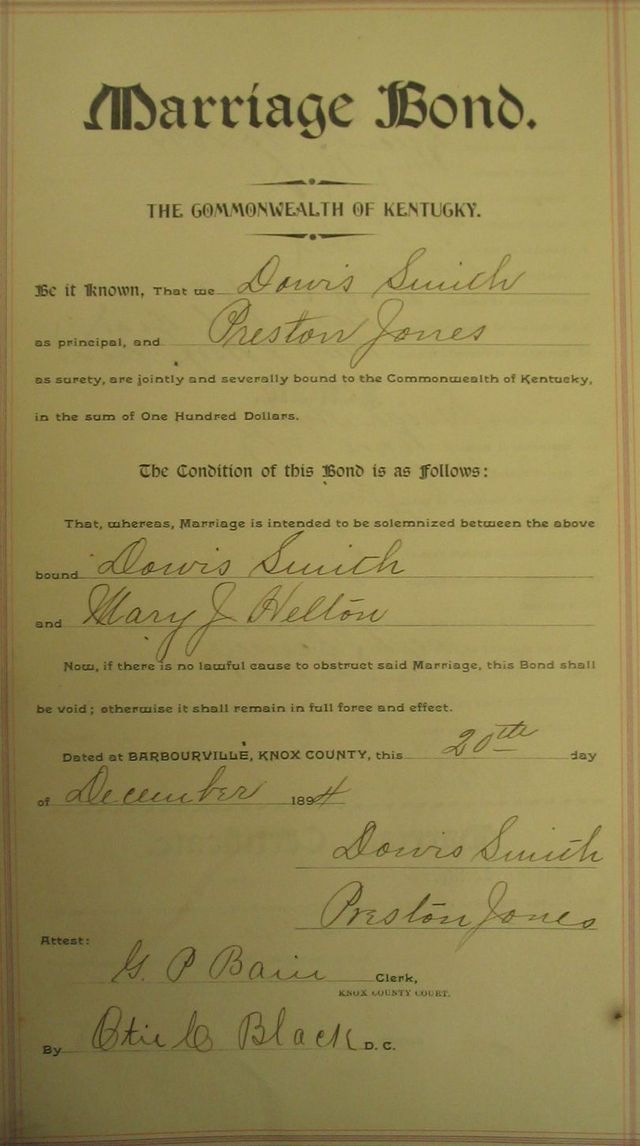 Marriage Bond.
THE COMMONWEALTH OF KENTUCKY.
Be it Known, That we Dowis Smith
as principal, and Preston Jones
as surety, are jointly and severally bound to the Commonwealth of Kentucky,
in the sum of One Hundred Dollars.
The Condition of this Bond is as Follows:
That, whereas, Marriage is intended to be solemnized between the above
bound Dowis Smith
and Mary J Helton
Now, if there is no lawful cause to obstruct said Marriage, this Bond shall
be void; otherwise it shall remain in full force and effect.
Dated at BARBOURVILLE, KNOX COUNTY, this 20th day
of December 1894
Dowis Smith
Preston Jones
Attest:
G. P Bain Clerk,
KNOX COUNTY COURT.
By Black D. C.